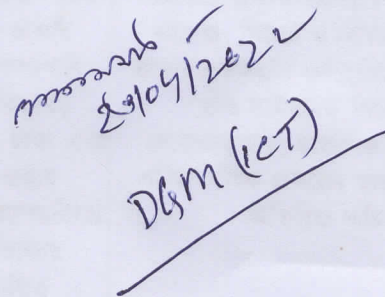 20/04/2022
DGM (ICT)